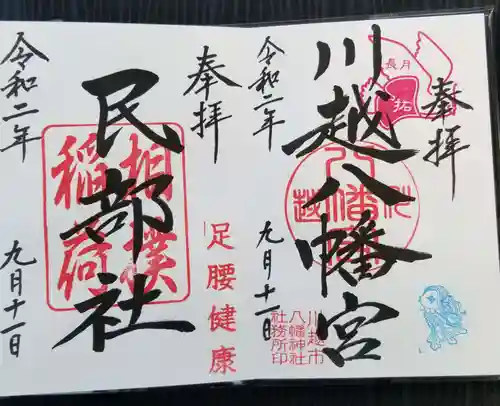 奉拝
川越八幡宮
令和二年
九月十一日
川越
八幡
川越市
八幡神社
社務所印
奉拝
民部社
相撲
稲荷
足腰健康
令和二年
九月十一日